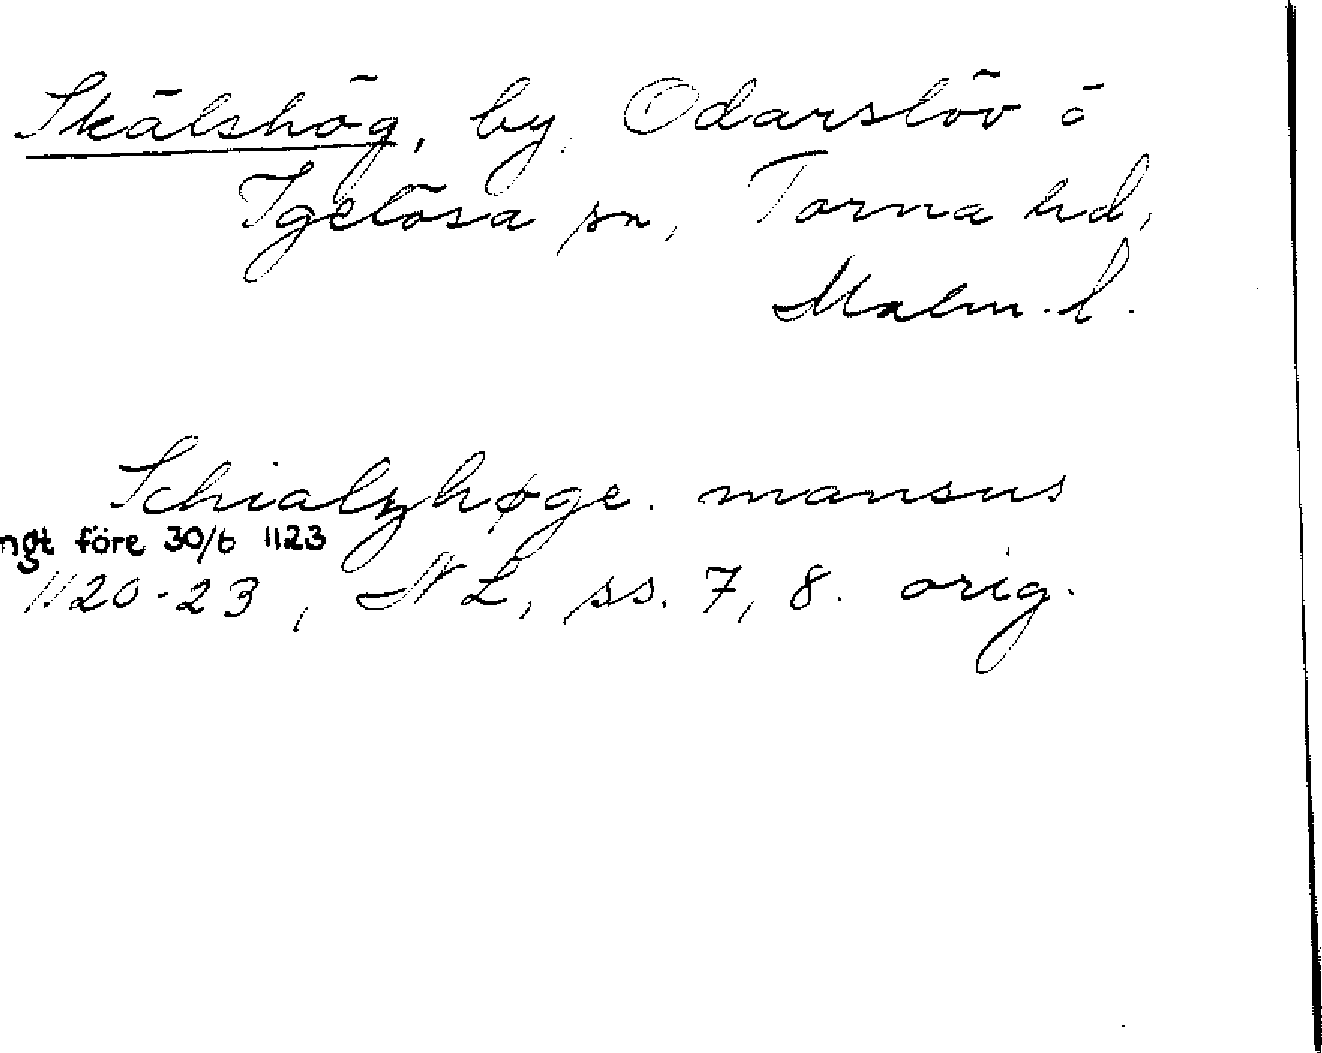 Skälshög, by, Odarslöv o
Igelösa sn, Torna hd,
Malm. l.
Schialzhøge. mansus
ngt före 30/6 1123
1120-23, NL, ss. 7, 8. orig.